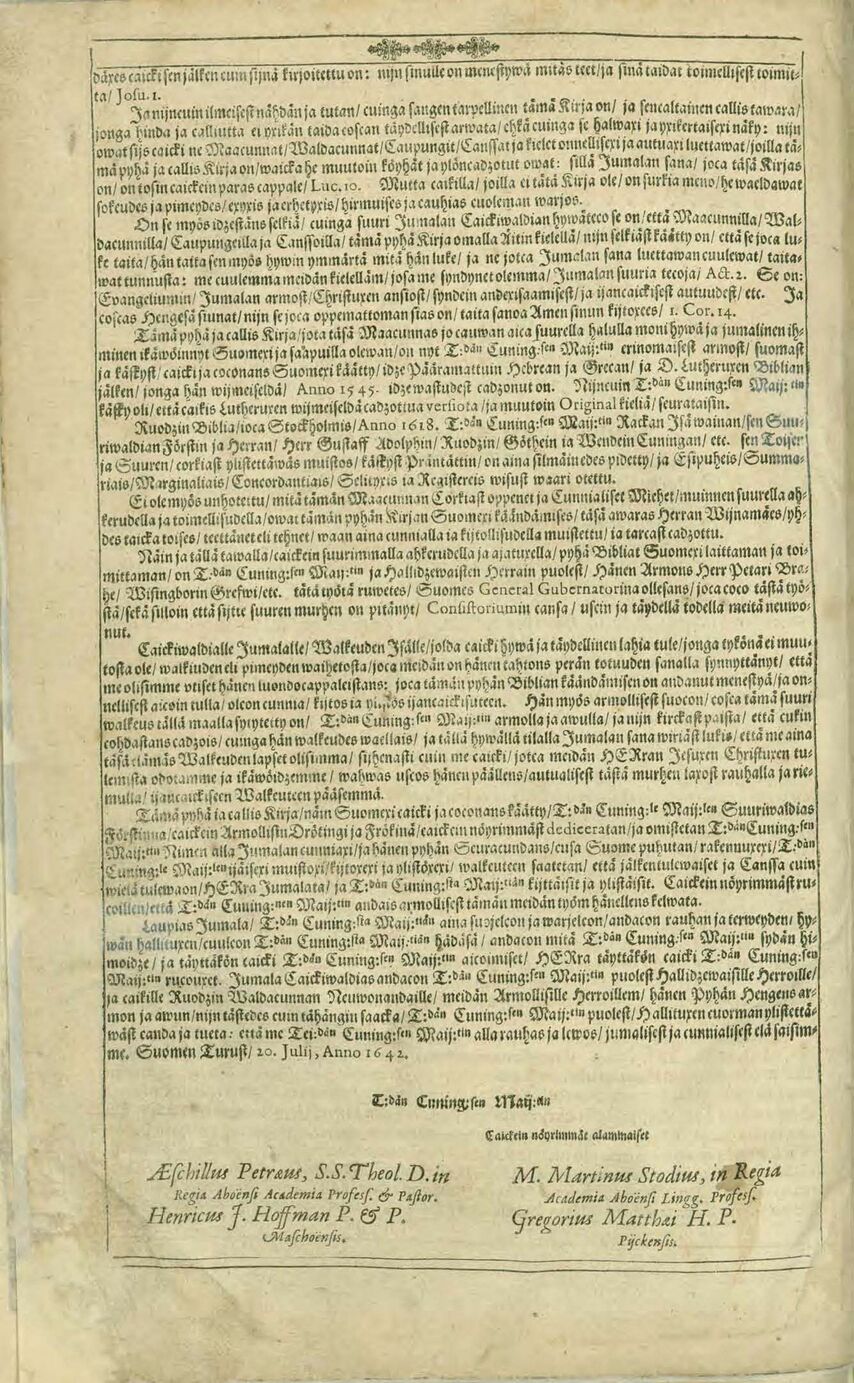 däxes caicki sen jälken cuin sijnä kirjoitettu on: nijn sinulle on menestywä mitäs teet/ ja sinä taidat toimellisest toimit-
ta/ Josu. 1.
Ja nijncuin ilmeisest nähdän ja tutan/ cuinga sangen tarpellinen tämä Kirja on/ ja sencaltainen callis tawara/
jonga hinda ja calliutta ei yxikän taida coscan täydellisest arwata/ ehkä cuinga se halwaxi ja yxikertaisexi näky: nijn
owat sijs caicki ne Maacunnat/ Waldacunnat/ Caupungit/ Canssat ja kielet onnellisexi ja autuaxi luettawat/ joilla tä-
mä pyhä ja callis Kirja on/ waicka he muutoin köyhät ja ylöncadzotut owat: sillä Jumalan sana/ joca täsä Kirjas
on/ on tosin caickein paras cappale/ Luc. 10. Mutta caikilla/ joilla ei tätä Kirja ole/ on surkia meno/ he waeldawat
sokeudes ja pimeydes/ exyxis ja erhetyxis/ hirmuises ja cauhias cuoleman warjos.
On se myös idzestäns selkiä/ cuinga suuri Jumalan Caickiwaldian hywäteco se on/ että Maacunnilla/ Wal-
dacunnilla/ Caupungeilla ja Canssoilla/ tämä pyhä Kirja omalla Äitin kielellä/ nijn selkiäst käätty on/ että se joca lu-
ke taita/ hän taita sen myös hywin ymmärtä mitä hän luke/ ja ne jotca Jumalan sana luettawan cuulewat/ taita-
wat tunnusta: me cuulemma meidän kielelläm/ josa me syndynet olemma/ Jumalan suuria tecoja/ Act. 2. Se on:
Evangeliumin/ Jumalan armost/ Christuxen ansiost/ syndein andexisaamisest/ ja ijancaickisest autuudest/ etc. Ja
coscas Hengesä siunat/ nijn se joca oppemattoman sias on/ taita sanoa Amen sinun kijtoxees/ 1. Cor. 14.
Tämä pyhä ja callis Kirja/ jota täsä Maacunnas jo cauwan aica suurella halulla moni hywä ja jumalinen ih-
minen ikäwöinnyt Suomexi ja saapuilla olewan/ on nyt T:dän Cuning:sen Maij:tin erinomaisest armost/ suomast
ja käskyst/ caicki ja coconans Suomexi käätty/ idze Pääramattuin Hebrean ja Grecan/ ja D. Lutheruxen Biblian
jälken/ jonga hän wijmeiseldä/ Anno 1545. idzewastudest cadzonut on. Nijncuin T:dän Cuning:sen Maij:tin
käsky oli/ että caikis Lutheruxen wijmeiseldä cadzottua versiota/ ja muutoin Original kieliä/ seurataisin.
Ruodzin Biblia/ joca Stockholmis/ Anno 1618. T:dän Cuning:sen Maij:tin Rackan Isäwainan/ sen Suu-
riwaldian Förstin ja Herran/ Herr Gustaff Adolphin/ Ruodzin/ Göthein ja Wendein Cuningan/ etc. sen Toisen
ja Suuren/ corkiast ylistettäwäs muistos/ käskyst Präntättin/ on aina silmäin edes pidetty/ ja Esipuheis/ Summa-
riais/ Marginaliais/ Concordantiais/ Selityxis ia Registereis wisust waari otettu.
Ei ole myös unhotettu/ mitä tämän Maacunnan Corkiast oppenet ja Cunnialiset Miehet/ muinnen suurella ah-
kerudella ja toimellisudella/ owat tämän pyhän Kirjan Suomexi käändämises/ täsä awaras Herran Wijnamäes/ yh-
des taicka toises/ teettänet eli tehnet/ waan aina cunnialla ia kijtollisudella muistettu/ ia tarcast cadzottu.
Näin ja tällä tawalla/ caickein suurimmalla ahkerudella ja ajatuxella/ pyhä Bibliat Suomexi laittaman ja toi-
mittaman/ on T:dän Cuning:sen Maij:tin ja Hallidzewaisten Herrain puolest/ Hänen Armons Herr Petari Bra-
he/ Wisingborin Grefwi/ etc. tätä työtä ruwetes/ Suomes General Gubernatorina ollesans/ joca coco tästä työ-
stä/ sekä silloin että sijtte suuren murhen on pitänyt/ Consistoriumin cansa/ usein ja täydellä todella meitä neuwo-
nut.
Caickiwaldialle Jumalalle/ Walkeuden Isälle/ jolda caicki hywä ja täydellinen lahja tule/ jonga tykönä ei muu-
tosta ole/ walkiuden eli pimeyden waihetosta/ joca meidän on hänen tahtons perän totuuden sanalla synnyttänyt/ että
me olisimme utiset hänen luondocappaleistans: joca tämän pyhän Biblian käändämisen on andanut menestyä/ ja on-
nellisest aicoin tulla/ olcon cunnia/ kijtos ia ylistys ijancaickisuteen. Hän myös armollisest suocon/ cosca tämä suuri
walkeus tällä maalla sytytetty on/ T:dän Cuning:sen Maij:tin armolla ja awulla/ ja nijn kirckast paista/ että cukin
cohdastans cadzois/ cuinga hän walkeudes waellais/ ja tällä hywällä tilalla Jumalan sana wiriäst lukis/ että me aina
täsä elämäs Walkeuden lapset olisimma/ sijhenasti cuin me caicki/ jotca meidän HERran Jesuxen Christuxen tu-
lemista odotamme ja ikäwöidzemme/ wahwas uscos hänen päällens/ autualisest tästä murhen laxost rauhalla ja rie-
mulla/ ijancaickiseen Walkeuteen pääsemmä.
Tämä pyhä ia callis Kirja/ näin Suomexi caicki ja coconans käätty/ T:dän Cuning:le Maij:len Suuriwaldias
Förstinna/ caickein Armollistin Drötingi ja Frökinä/ caickein nöyrimmäst dediceratan/ ja omistetan T:dän Cuning:sen
Maij:tin Nimen alla Jumalan cunniaxi/ ja hänen pyhän Seuracundans/ cusa Suome puhutan/ rakennuxexi/ T:dän
Cuning:len Maij:len ijäisexi muistoxi/ kijtoxexi ja ylistöxexi/ walkeuteen saatetan/ että jälkentulewaiset ja Canssa cuin
wielä tulewa on/ HERra Jumalata/ ja T:dän Cuning:sta Maij:tiän kijttäisit ja ylistäisit. Caickein nöyrimmäst ru-
coillen/ että T:dän Cuning:nen Maij:tis andais armollisest tämän meidän työm hänellens kelwata.
Laupias Jumala/ T:dän Cuning:sta Maij:tiän aina suojelcon ja warjelcon/ andacon rauhan ja terweyden/ hy-
wän hallituxen/ cuulcon T:dän Cuning:sta Maij:tiän hädäsä/ andacon mitä T:dän Cuning:sen Maij:tin sydän hi-
moidze/ ja täyttäkön caicki T:dän Cuning:sen Maij:tin aicoimiset/ HERra täyttäkön caicki T:dän Cuning:sen
Maij:tin rucouxet. Jumala Caickiwaldias andacon T:dän Cuning:sen Maij:tin puolest Hallidzewaisille Herroille/
ja caikille Ruodzin Waldacunnan Neuwonandaille/ meidän Armollisille Herroillem/ hänen Pyhän Hengens ar-
mon ja awun/ nijn tästedes cuin tähängin saacka/ T:dän Cuning:sen Maij:tin puolest/ Hallituxen cuorman ylistettä-
wäst canda ja tueta: että me Tei:dän Cuning:sen Maij:tin alla rauhas ja lewos/ jumalisest ja cunnialisest elä saisim-
me. Suomen Turust/ 20. Julij, Anno 1642.
T:dän Cuning:sen Maij:tin
Caickein nöyrimmät alammaiset
Æschillus Petræus, S.S. Theol. D. in
Regia Aboënsi Academia Profess. & Pastor.
Henricus J. Hoffman P. & P.
Maschoënsis.
M. Martinus Stodius, in Regia
Academia Aboënsi Lingg. Profess.
Gregorius Matthæi H. P.
Pijckensis.